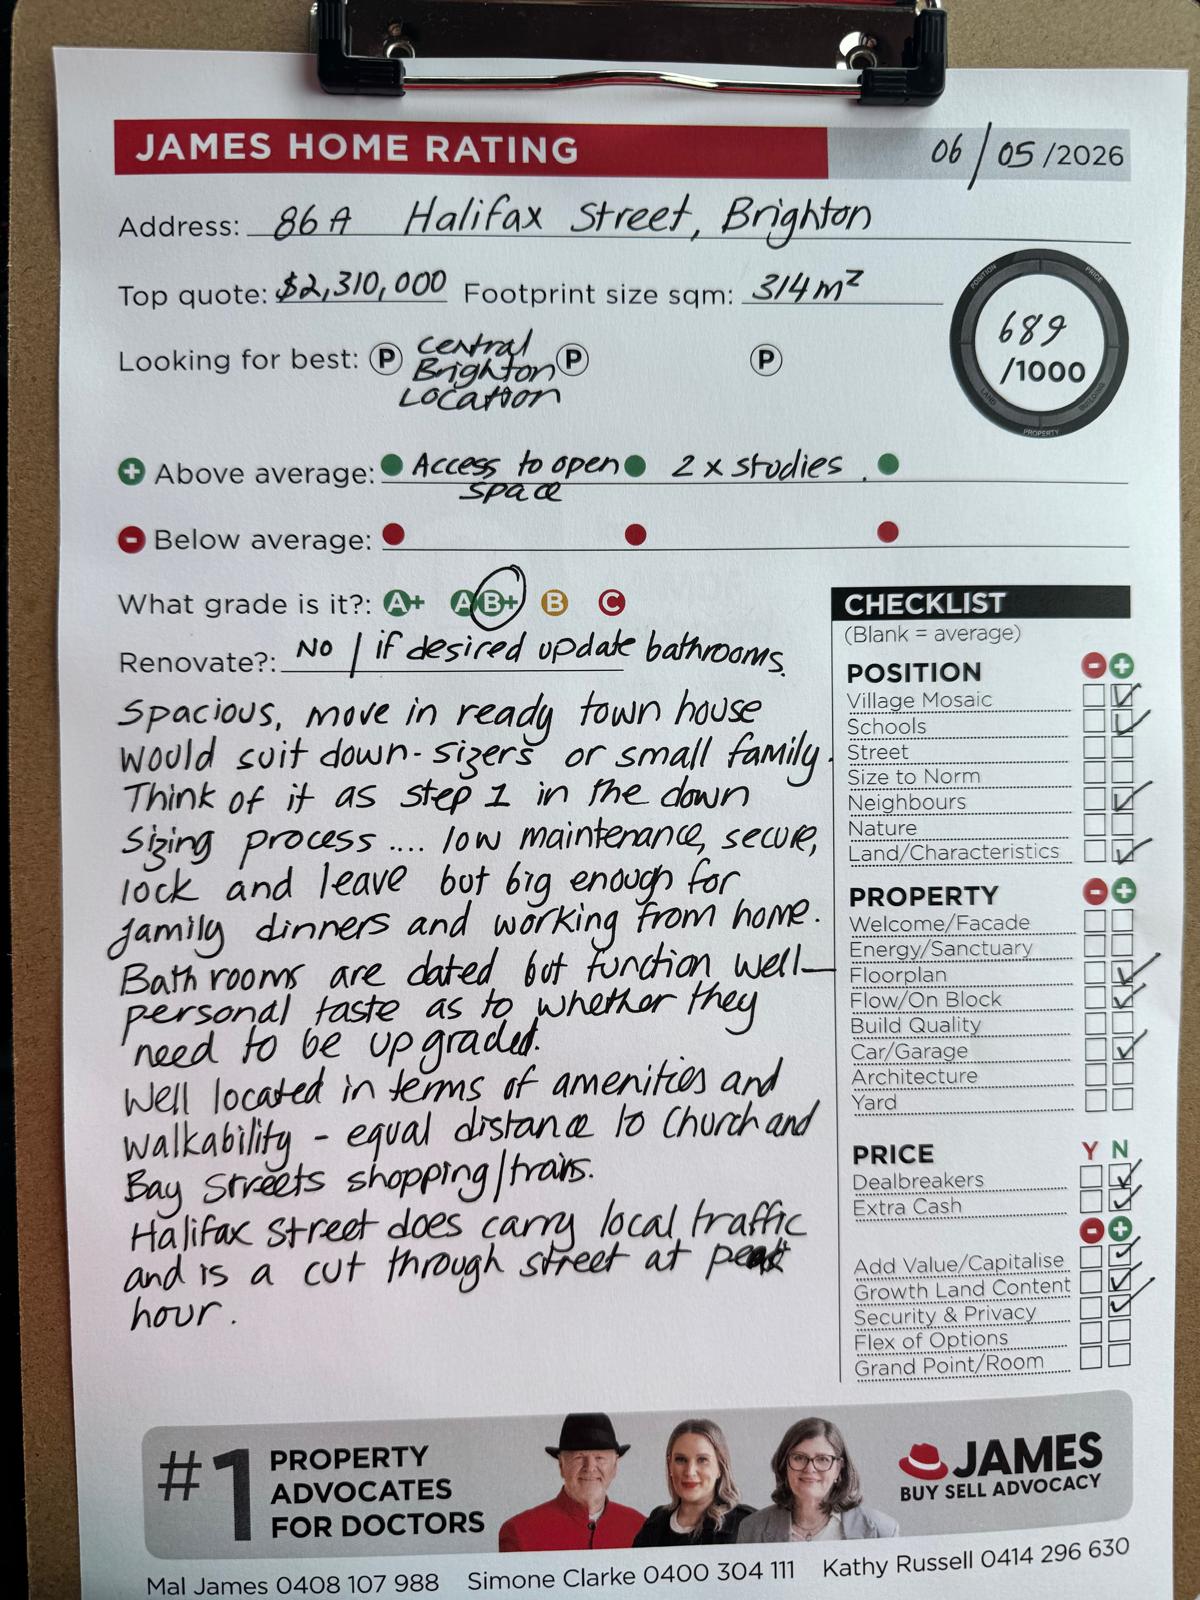 JAMES HOME RATING 06/05/2026
Address: 86A Halifax Street, Brighton
Top quote: $2,310,000 Footprint size sqm: 314m²
POSITION PRICE
689
/1000
LAND BUILDING
PROPERTY
Looking for best: P Central Brighton Location P P
Above average: Access to open space 2 x studies.
Below average:
What grade is it?: A+ A B+ B C
Renovate?: NO / if desired update bathrooms.
Spacious, move in ready town house
would suit down-sizers or small family.
Think of it as step 1 in the down
sizing process .... low maintenance, secure,
lock and leave but big enough for
family dinners and working from home.
Bathrooms are dated but function well—
personal taste as to whether they
need to be upgraded.
Well located in terms of amenities and
walkability - equal distance to Church and
Bay Streets shopping/trains.
Halifax Street does carry local traffic
and is a cut through street at peak
hour.
CHECKLIST
(Blank = average)
POSITION - +
Village Mosaic
Schools
Street
Size to Norm
Neighbours
Nature
Land/Characteristics
PROPERTY - +
Welcome/Facade
Energy/Sanctuary
Floorplan
Flow/On Block
Build Quality
Car/Garage
Architecture
Yard
PRICE Y N
Dealbreakers
Extra Cash
- +
Add Value/Capitalise
Growth Land Content
Security & Privacy
Flex of Options
Grand Point/Room
#1 PROPERTY
ADVOCATES
FOR DOCTORS
JAMES
BUY SELL ADVOCACY
Mal James 0408 107 988 Simone Clarke 0400 304 111 Kathy Russell 0414 296 630